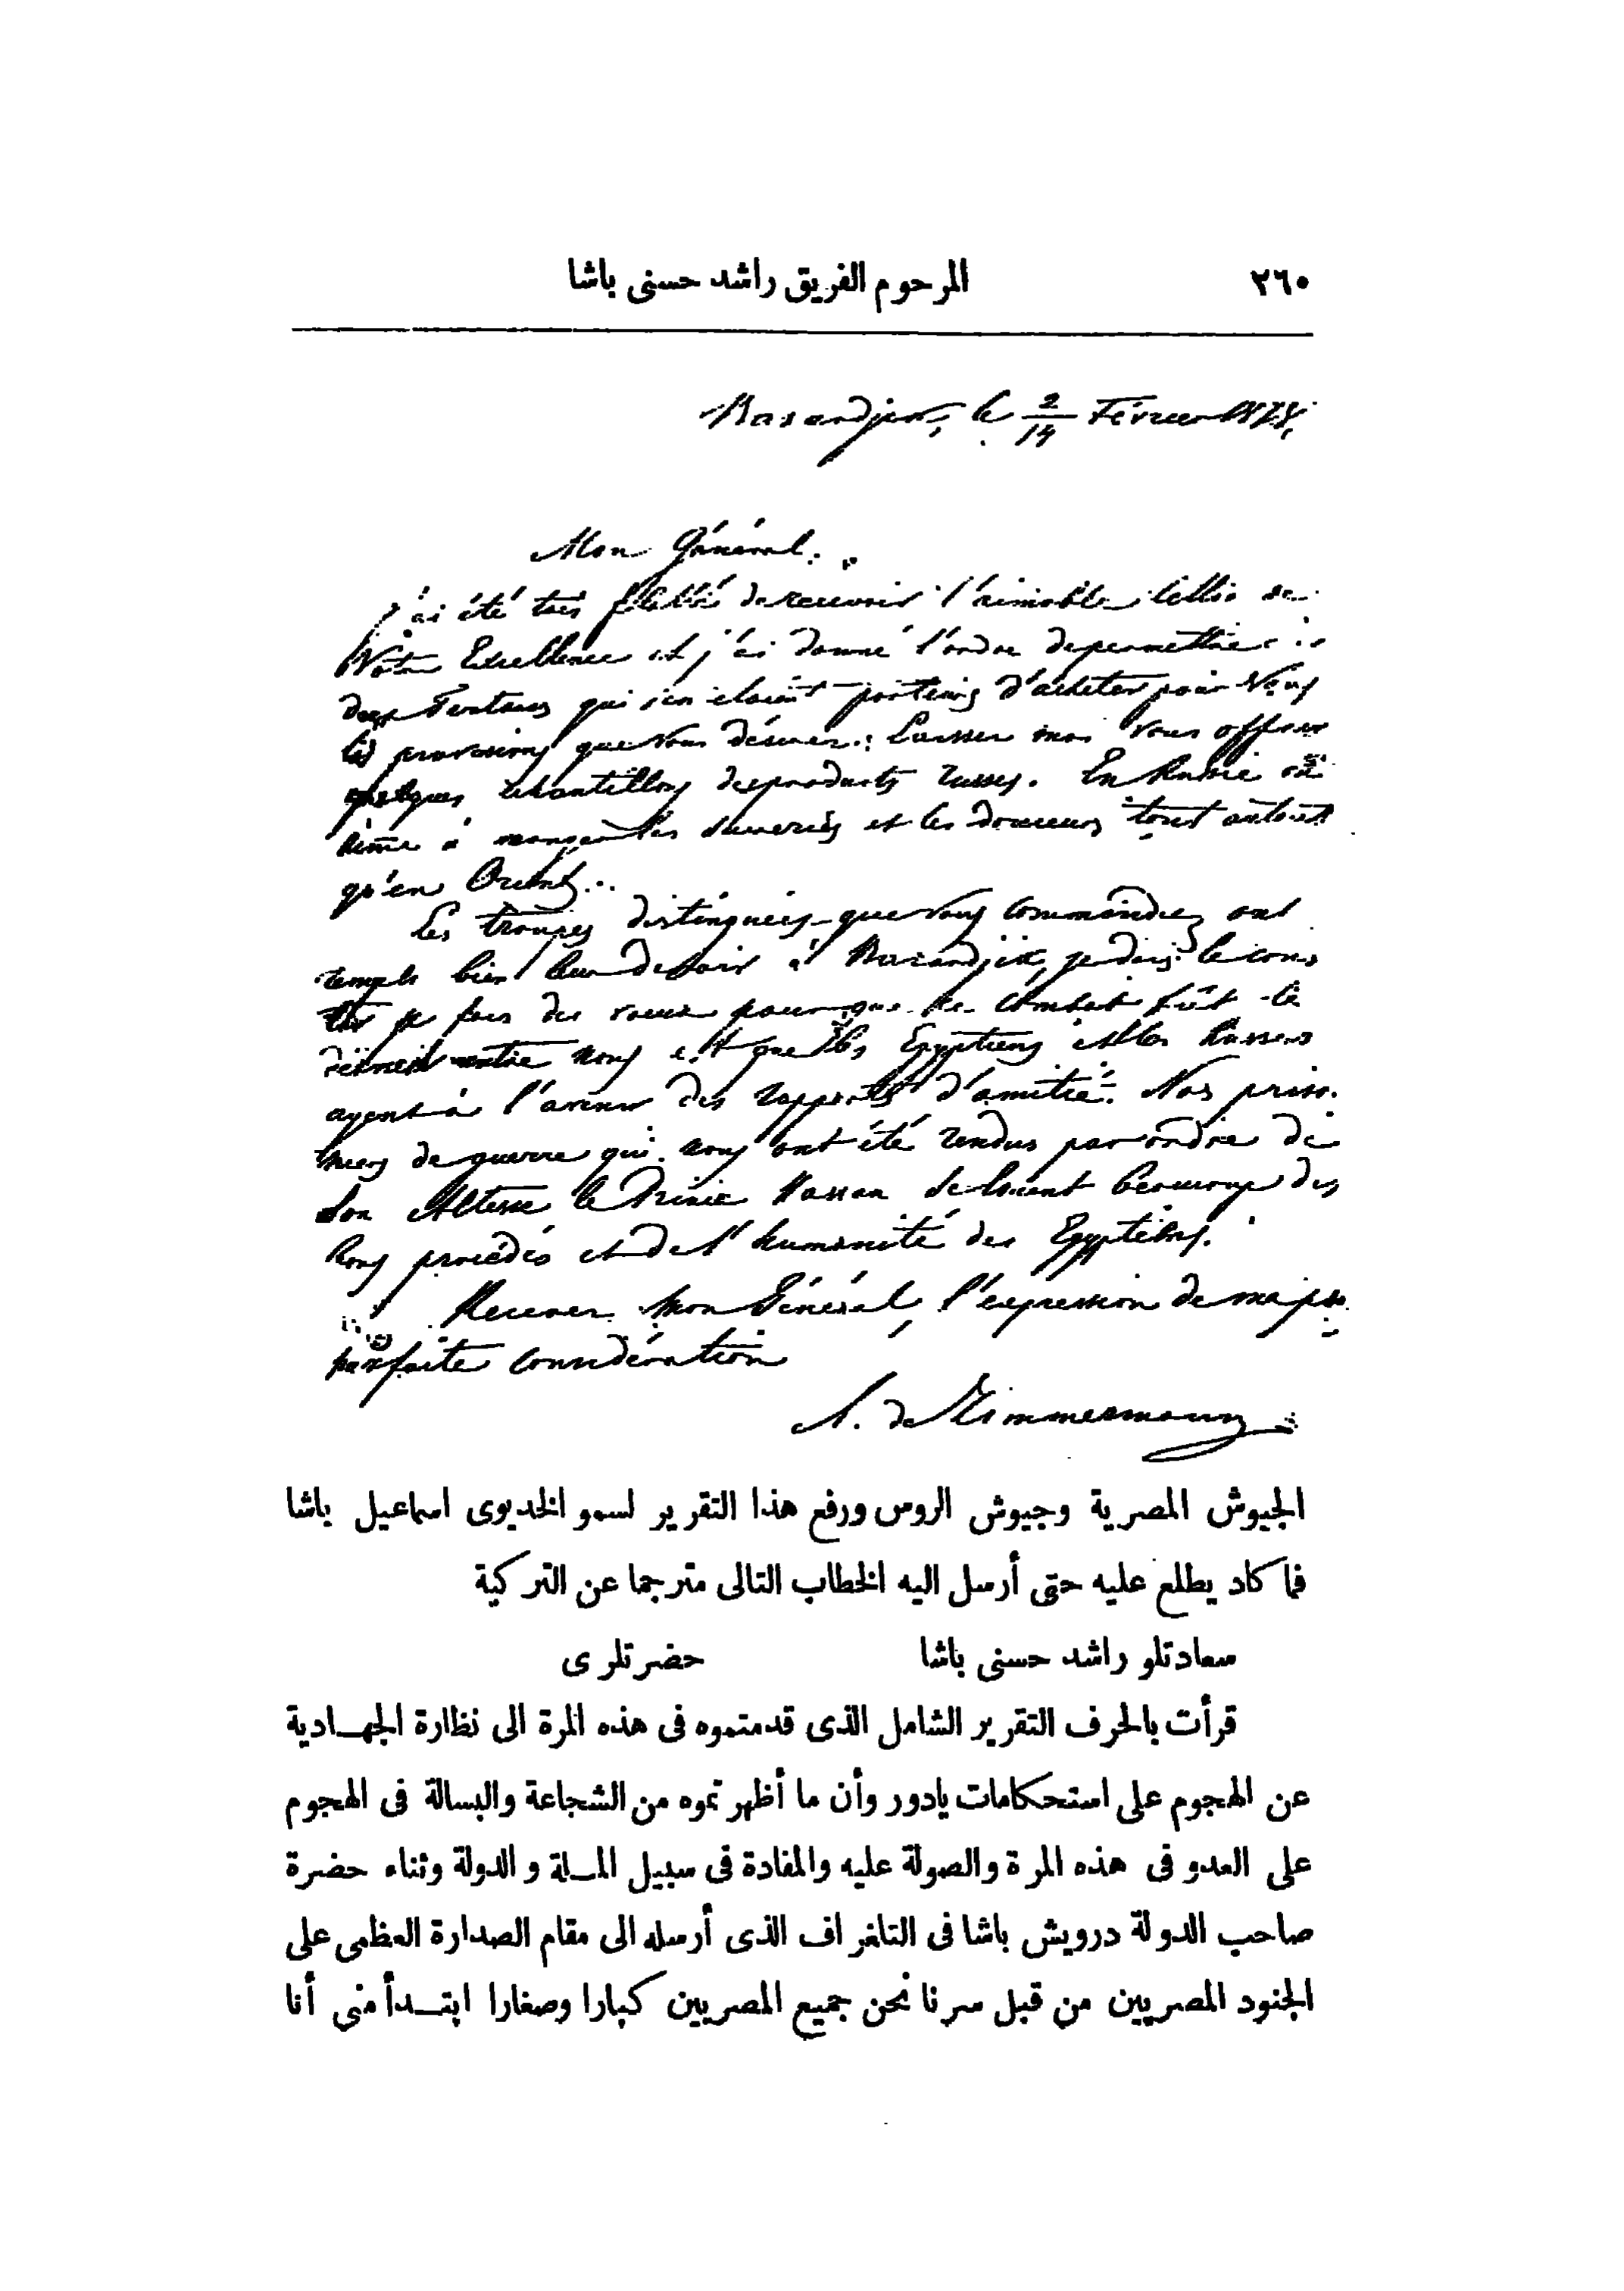 ٢٦٠
المرحوم الفريق راشد حسنى باشا
Bazardjik, le 2/14 Février 1878.
Mon Général.
J'ai été très flatté de recevoir l'aimable lettre de
Votre Excellence et j'ai donné l'ordre de permettre
qui s'en étaient porteurs d'acheter pour Vous
les provisions que vous désirez. Laissez moi vous offrir
quelques échantillons des produits russes. En Russie on
aime à manger les sucreries et les douceurs tout autant
qu'en Orient..
Les troupes distinguées que Vous commandez ont
rempli bien leur devoir à Bazardjik, je dois le cons
ter je fais des voeux pour que ce combat fût le
dernier entre nous et que les Egyptiens et les Russes
ayent à l'avenir des rapports d'amitié. Nos prison.
niers de guerre qui nous ont été rendus par ordre de
Son Altesse le Prince Hassan se louent beaucoup des
bons procédés et de l'humanité des Egyptiens.
Recevez mon Général, l'expression de ma
parfaite considération
A. de Zimmermann
الجيوش المصرية وجيوش الروس ورفع هذا التقرير لسمو الخديوى اسماعيل باشا
فما كاد يطلع عليه حتى أرسل اليه الخطاب التالى مترجما عن التركية
سعادتلو راشد حسنى باشا حضرتلرى
قرأت بالحرف التقرير الشامل الذى قدمتموه فى هذه المرة الى نظارة الجهادية
عن الهجوم على استحكامات يادور وأن ما أظهرتموه من الشجاعة والبسالة فى الهجوم
على العدو فى هذه المرة والصولة عليه والمفادة فى سبيل الملة والدولة وثناء حضرة
صاحب الدولة درويش باشا فى التلغراف الذى أرسله الى مقام الصدارة العظمى على
الجنود المصريين من قبل سرنا نحن جميع المصريين كبارا وصغارا ابتدأ منى أنا